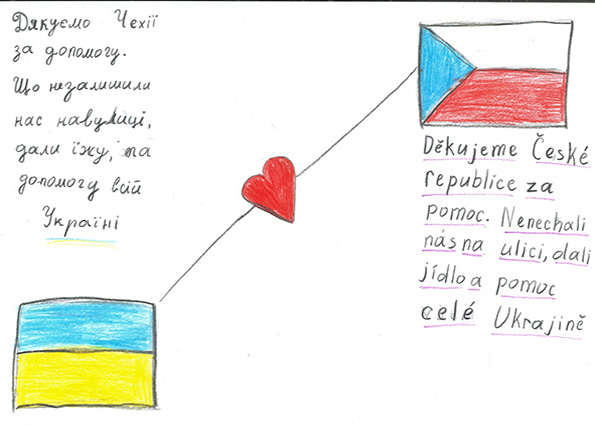 Дякуємо Чехії
за допомогу.
Що незалишили
нас навулиці,
дали їжу, та
допомогу всій
Україні
Děkujeme České
republice za
pomoc. Nenechali
nás na ulici, dali
jídlo a pomoc
celé Ukrajině